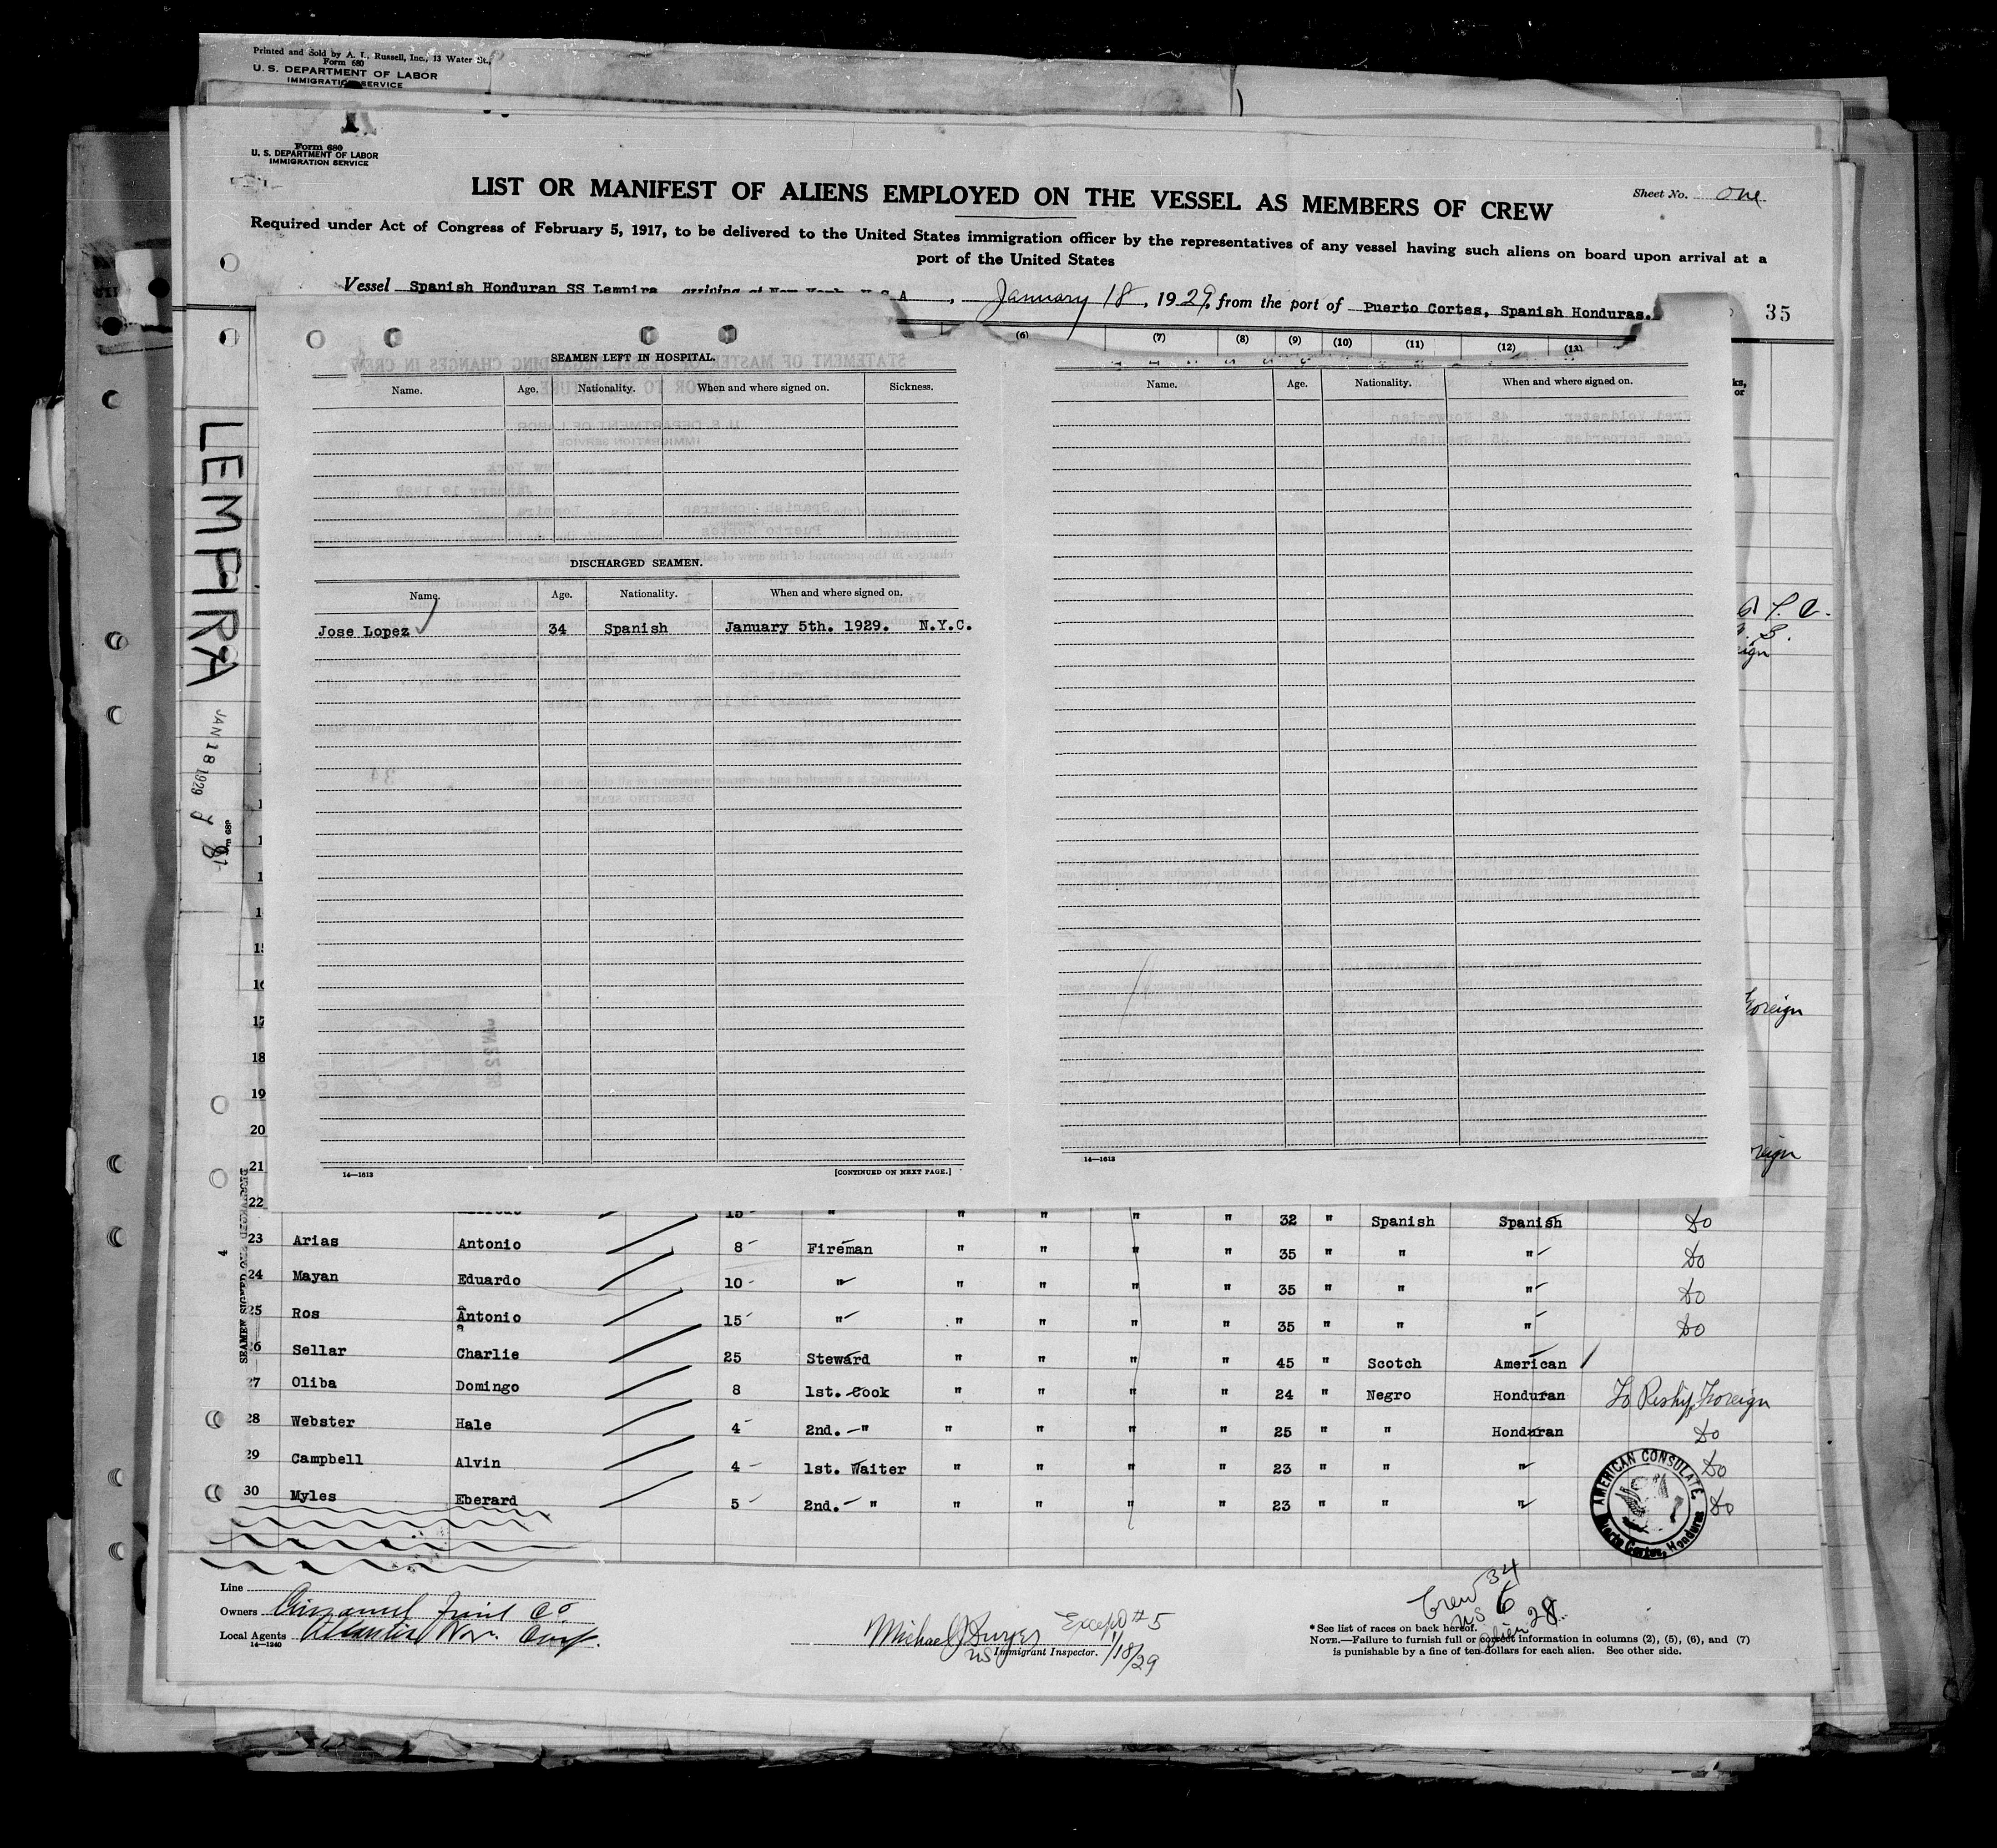 Printed and Sold by A. L. Russell, Inc., 13 Water St.,
Form 680
U. S. DEPARTMENT OF LABOR
IMMIGRATION SERVICE
Form 680
U. S. DEPARTMENT OF LABOR
IMMIGRATION SERVICE
Sheet No. One
LIST OR MANIFEST OF ALIENS EMPLOYED ON THE VESSEL AS MEMBERS OF CREW
Required under Act of Congress of February 5, 1917, to be delivered to the United States immigration officer by the representatives of any vessel having such aliens on board upon arrival at a
port of the United States
Vessel Spanish Honduran SS Lempira arriving at New York, U S A, January 18, 1929, from the port of Puerto Cortes, Spanish Honduras.
35
(6) (7) (8) (9) (10) (11) (12) (13)
LEMPIRA
JAN 18 1929
SEAMEN LEFT IN HOSPITAL.
Name. Age. Nationality. When and where signed on. Sickness.
Name. Age. Nationality. When and where signed on.
DISCHARGED SEAMEN.
Name. Age. Nationality. When and where signed on.
Jose Lopez 34 Spanish January 5th. 1929. N.Y.C.
Foreign
15
16
17
18
19
20
21
14—1613 [CONTINUED ON NEXT PAGE.]
14—1613
22 15 " " " " " 32 " Spanish Spanish Do
23 Arias Antonio 8 Fireman " " " " 35 " " " Do
24 Mayan Eduardo 10 " " " " " 35 " " " Do
25 Ros Antonio 15 " " " " " 35 " " " Do
26 Sellar Charlie 25 Steward " " " " 45 " Scotch American
27 Oliba Domingo 8 1st. Cook " " " " 24 " Negro Honduran To Reship Foreign
28 Webster Hale 4 2nd. " " " " " 25 " " Honduran Do
29 Campbell Alvin 4 1st. Waiter " " " " 23 " " " Do
30 Myles Eberard 5 2nd. " " " " " 23 " " " Do
AMERICAN CONSULATE.
Puerto Cortes, Honduras
Line
Owners Fruit Co
Local Agents Atlantic Nav. Corp.
14—1240
Michael J Dwyer Except #5
Immigrant Inspector. 1/18/29
Crew 34
US 6
Alien 28
* See list of races on back hereof.
NOTE.—Failure to furnish full or correct information in columns (2), (5), (6), and (7)
is punishable by a fine of ten dollars for each alien. See other side.